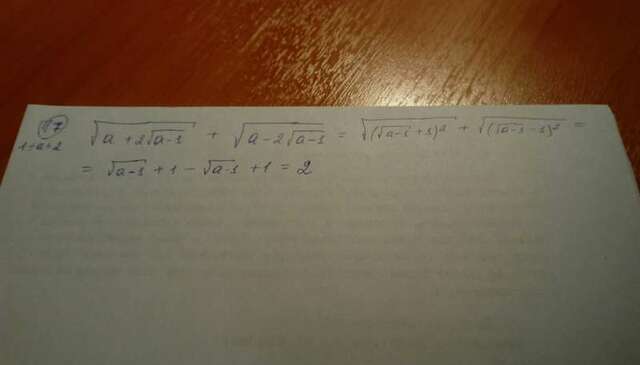 №7
1<a<2
√(a+2√(a-1)) + √(a-2√(a-1)) = √((√(a-1)+1)²) + √((√(a-1)-1)²) =
= √(a-1) + 1 - √(a-1) + 1 = 2